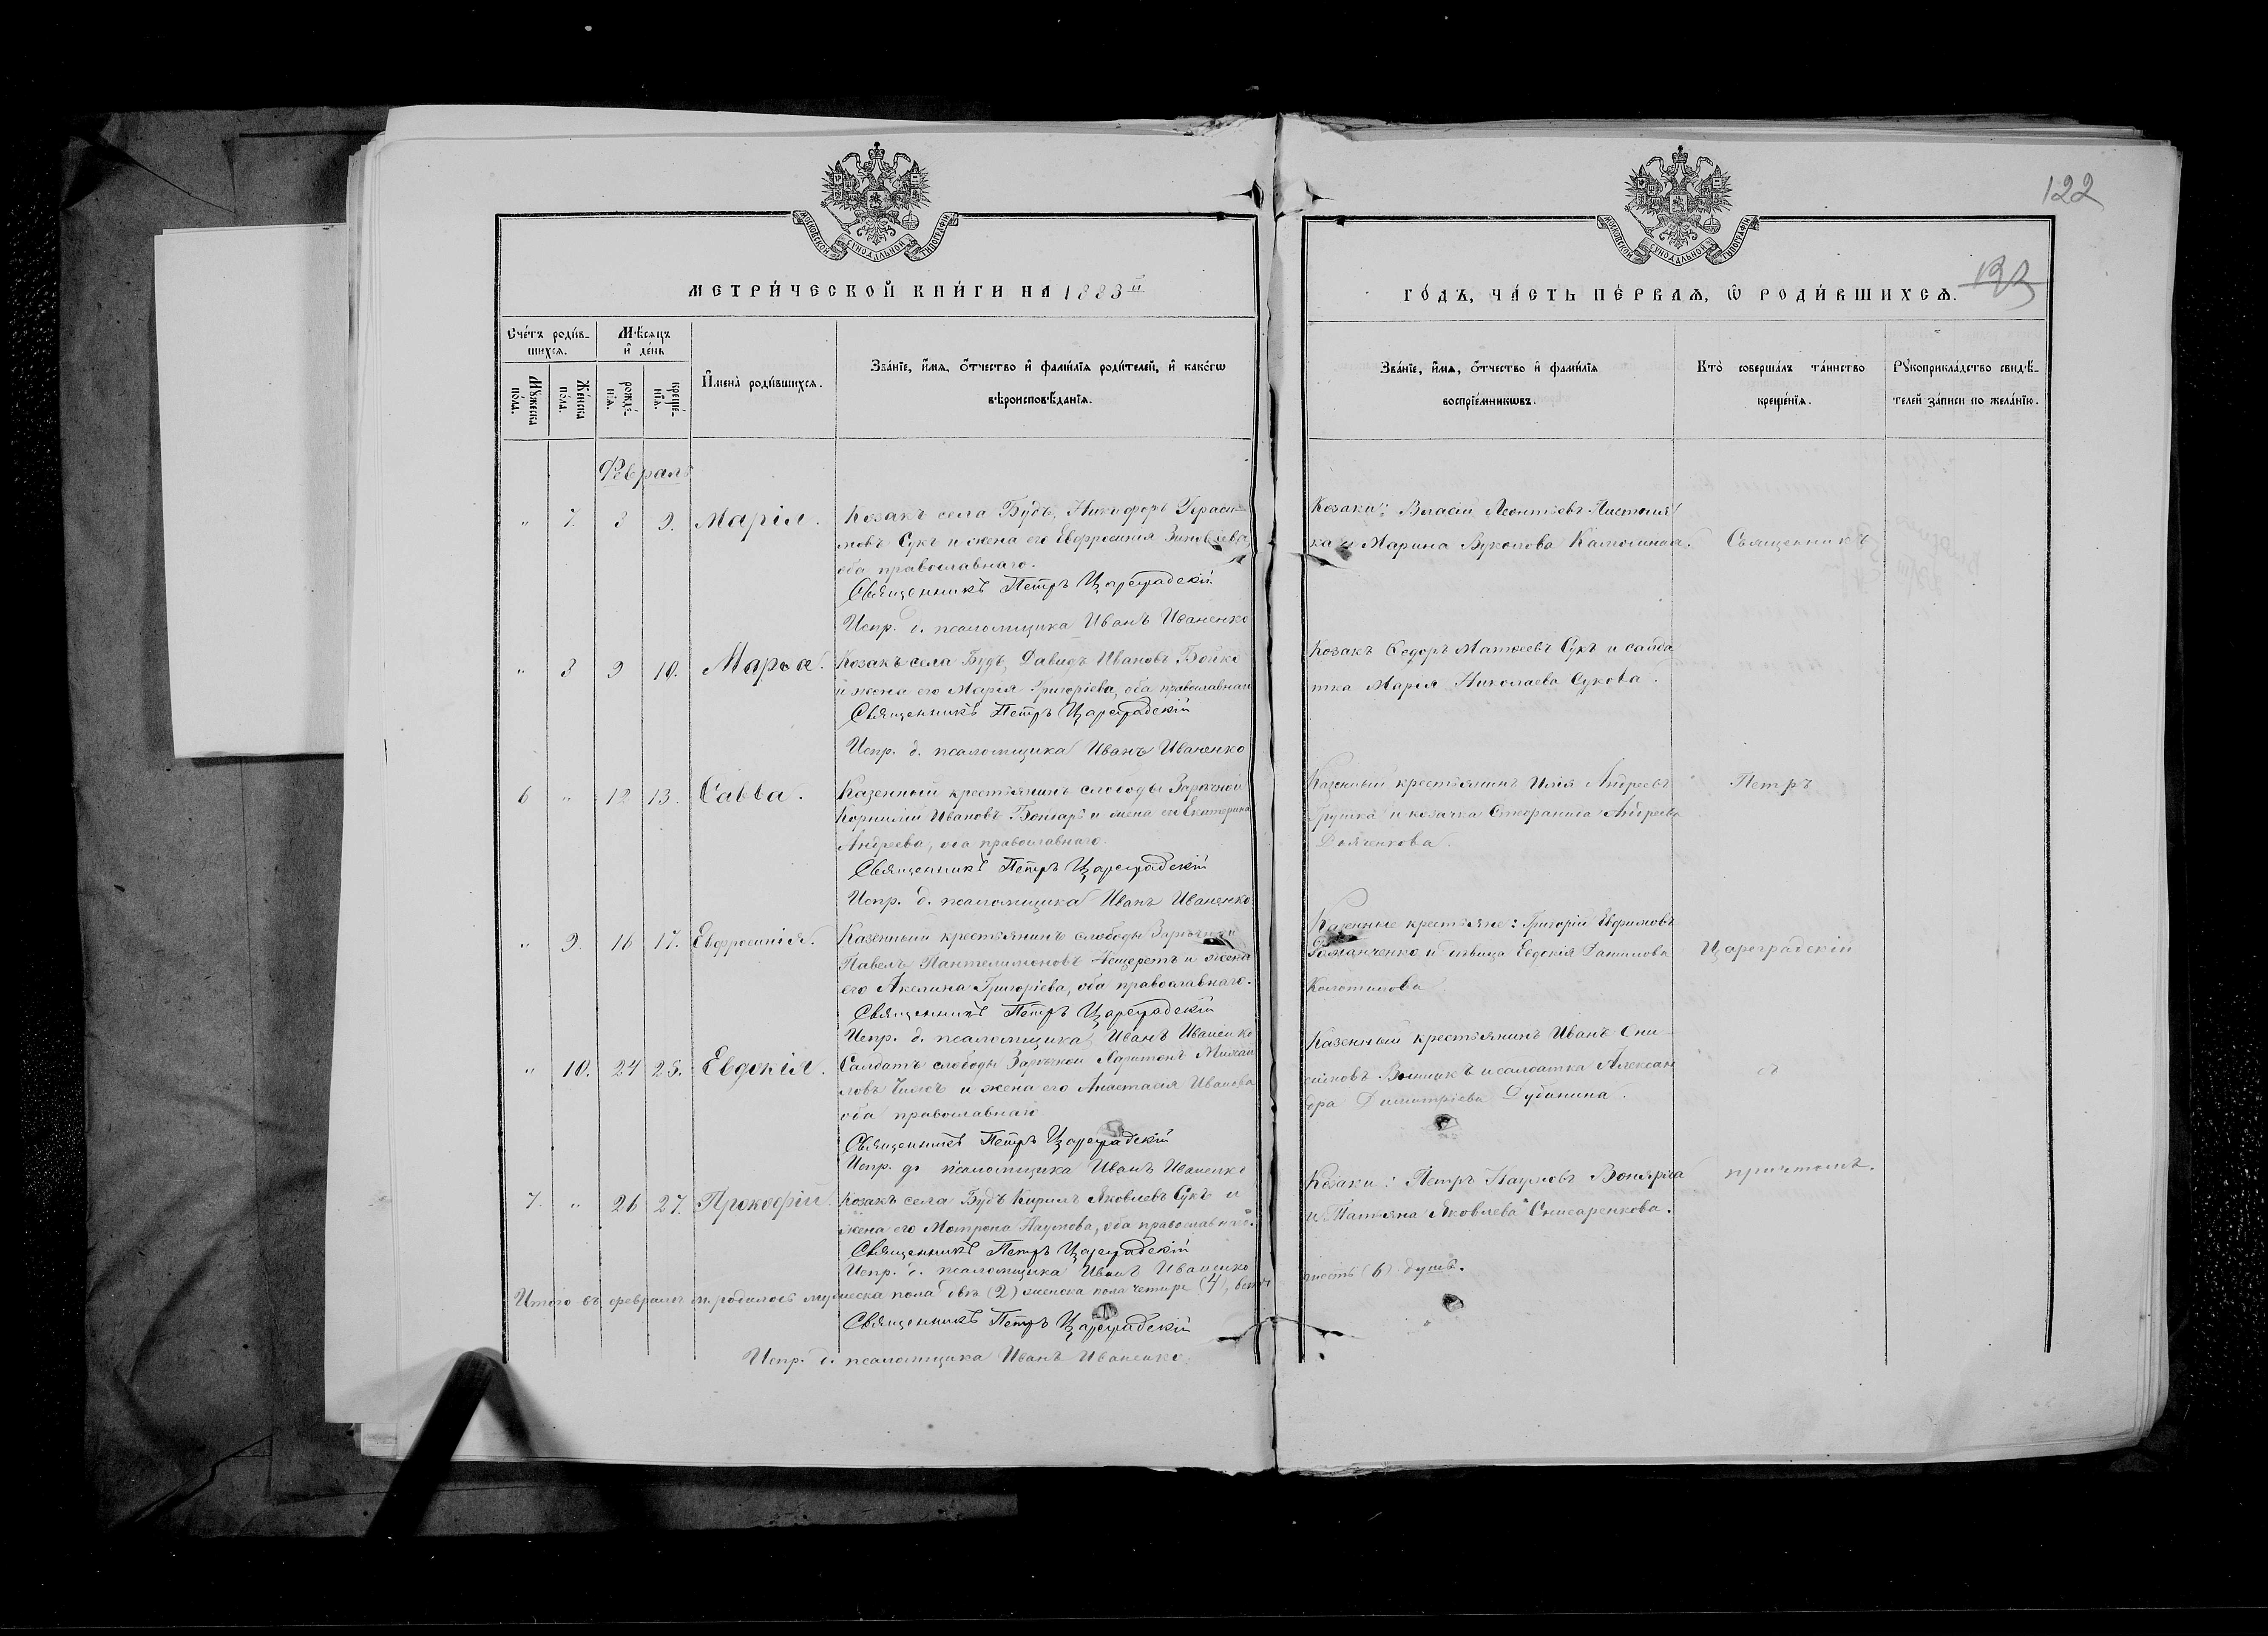 122
МОСКОВСКОЙ СУНОДАЛЬНОЙ ТИПОГРАФІИ
МЕТРИ́ЧЕСКОЙ КНИ́ГИ НА 1883 й
Сче́тъ роди́в-
шихсѧ.
Мѣ́сѧцъ
и҆ де́нь
Мꙋ́жеска
по́ла.
Же́нска
по́ла.
рожде́-
нїѧ.
креще́-
нїѧ.
И҆мена̀ роди́вшихсѧ.
Зва́нїе, и҆́мѧ, ѻ҆́тчество и҆ фами́лїѧ роди́телей, и҆ како́гѡ
вѣроисповѣ́данїѧ.
Февраль
„ 7. 3 9. Марія.
Козакъ села Будъ, Никифоръ Гераси-
мовъ Сукъ и жена его Евфросинія Зиновіева,
оба православнаго.
Священникъ Петръ Цареградскій
Испр. д. псаломщика Иванъ Иваненко
„ 8 9 10. Марѳа.
Козакъ села Будъ, Давидъ Ивановъ Бойко
и жена его Марія Григоріева, оба православнаго
Священникъ Петръ Цареградскій
Испр. д. псаломщика Иванъ Иваненко
6 „ 12 13. Савва.
Казенный крестьянинъ слободы Зарѣчной
Корнилій Ивановъ и жена его Екатерина
Андреева, оба православнаго.
Священникъ Петръ Цареградскій
Испр. д. псаломщика Иванъ Иваненко
„ 9. 16 17. Евфросинія.
Казенный крестьянинъ слободы Зарѣчной
Павелъ Пантелимоновъ и жена
его Акелина Григоріева, оба православнаго.
Священникъ Петръ Цареградскій
Испр. д. псаломщика Иванъ Иваненко
„ 10. 24 25. Евдокія.
Салдатъ слободы Зарѣчной Харитонъ Михай
ловъ и жена его Анастасія Иванова
оба православнаго
Священникъ Петръ Цареградскій
Испр. д. псаломщика Иванъ Иваненко
7. „ 26 27. Прокофій.
Козакъ села Будъ Кирилъ Яковлевъ Сукъ и
жена его Мотрона Наумова, оба православнаго.
Священникъ Петръ Цареградскій
Испр. д. псаломщика Иванъ Иваненко
Итого въ февралѣ м. родилось мужеска пола два (2) женска пола четыре (4), всего
Священникъ Петръ Цареградскій
Испр. д. псаломщика Иванъ Иваненко.
МОСКОВСКОЙ СУНОДАЛЬНОЙ ТИПОГРАФІИ
ГО́ДЪ, ЧА́СТЬ ПЕ́РВАѦ, Ѡ҆ РОДИ́ВШИХСѦ.
Зва́нїе, и҆́мѧ, ѻ҆́тчество и҆ фами́лїѧ
воспрїе́мникѡвъ.
Кто̀ соверша́лъ та́инство
креще́нїѧ.
Рꙋкоприкла́дство свидѣ́-
телей за́писи по жела́нїю.
Козаки: Власій Леонтіевъ
ка и Марина Вуколова
Священникъ
Козакъ Ѳедоръ Матвѣевъ Сукъ и салда
тка Марія Николаева Сукова.
Казенный крестьянинъ Илія Андреевъ
и козачка Стефанида Андреева
Петръ
Казенные крестьяне: Григорій Евфимовъ
Романченко и дѣвица Евдокія Данилова
Колотилова.
Цареградскій
Казенный крестьянинъ Иванъ
и салдатка Алексан
дра Димитріева Дубинина.
съ
Козаки: Петръ Наумовъ
и Татьяна Яковлева Снисаренкова.
причтомъ.
шесть (6) душъ.